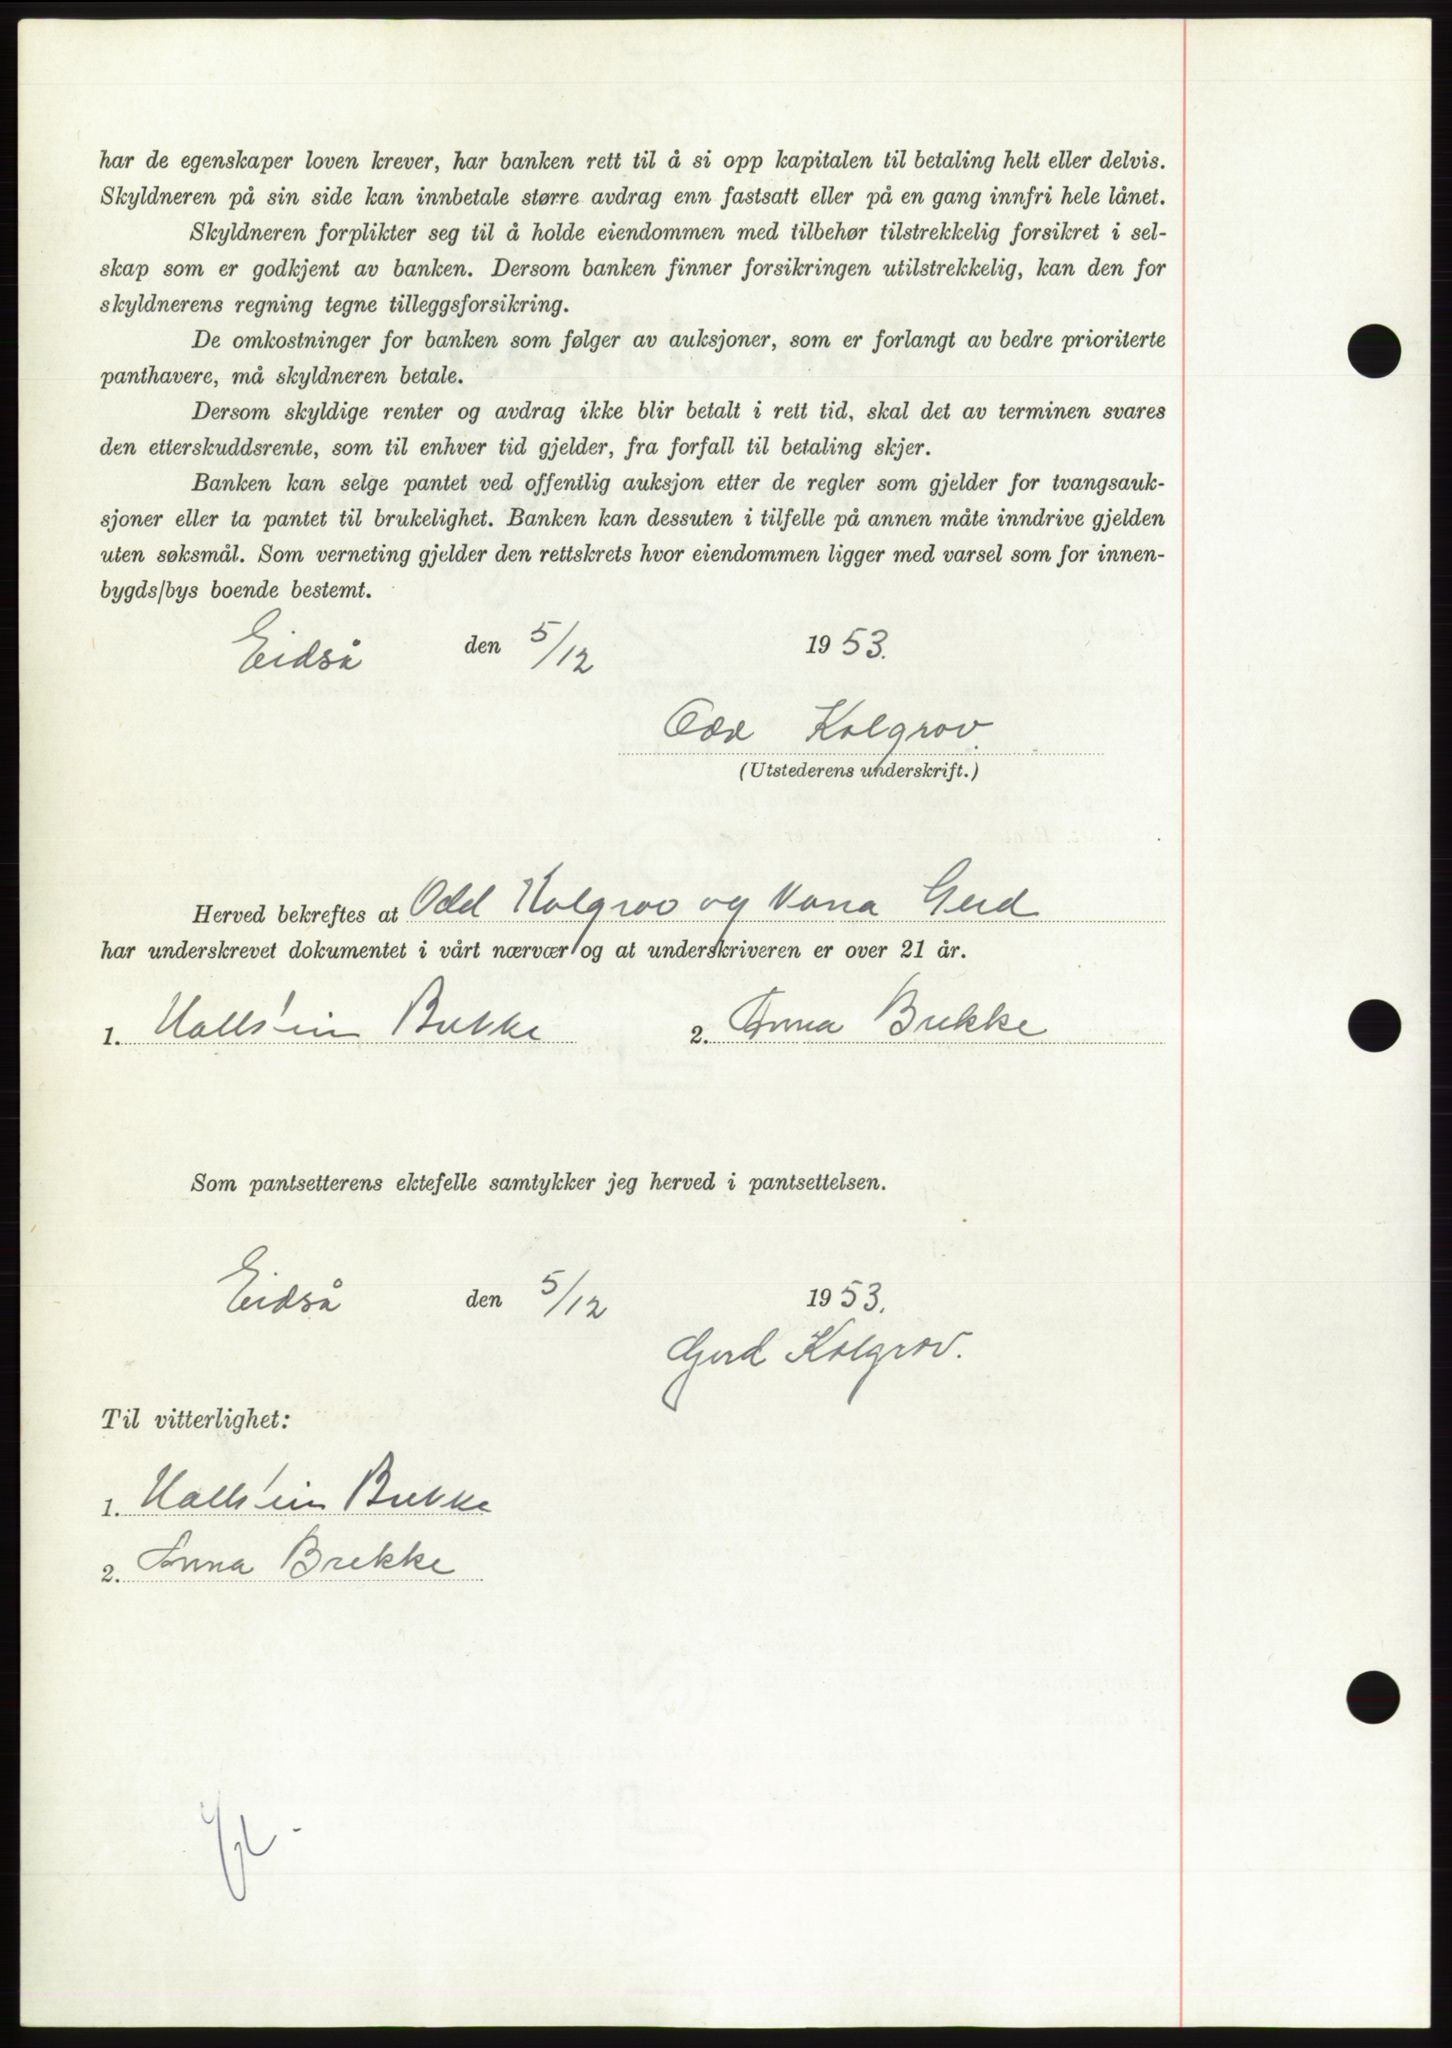 har de egenskaper loven krever, har banken rett til å si opp kapitalen til betaling helt eller delvis.
Skyldneren på sin side kan innbetale større avdrag enn fastsatt eller på en gang innfri hele lånet.
Skyldneren forplikter seg til å holde eiendommen med tilbehør tilstrekkelig forsikret i sel-
skap som er godkjent av banken. Dersom banken finner forsikringen utilstrekkelig, kan den for
skyldnerens regning tegne tilleggsforsikring.
De omkostninger for banken som følger av auksjoner, som er forlangt av bedre prioriterte
panthavere, må skyldneren betale.
Dersom skyldige renter og avdrag ikke blir betalt i rett tid, skal det av terminen svares
den etterskuddsrente, som til enhver tid gjelder, fra forfall til betaling skjer.
Banken kan selge pantet ved offentlig auksjon etter de regler som gjelder for tvangsauk-
sjoner eller ta pantet til brukelighet. Banken kan dessuten i tilfelle på annen måte inndrive gjelden
uten søksmål. Som verneting gjelder den rettskrets hvor eiendommen ligger med varsel som for innen-
bygds/bys boende bestemt.
Eidså den 5/12 1953.
Odd Kolgrov.
(Utstederens underskrift.)
Herved bekreftes at Odd Kolgrov og kona Gerd
har underskrevet dokumentet i vårt nærvær og at underskriveren er over 21 år.
1. Hallstein Brekke 2. Anna Brekke
Som pantsetterens ektefelle samtykker jeg herved i pantsettelsen.
Eidså den 5/12 1953.
Gerd Kolgrov.
Til vitterlighet:
1. Hallstein Brekke
2. Anna Brekke